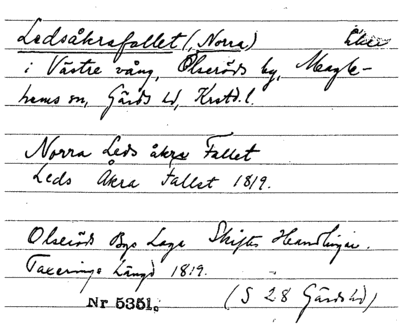 Ledsåkrafallet (, Norra) Åker
i Västre vång, Olseröds by, Magle-
hems sn, Gärds hd, Krstd. l.
Norra Leds åkra Fallet
Leds Åkra Fallet 1819.
Olseröds Bys Laga Skiftes Handlingar.
Taxerings Längd 1819.
Nr 5351. (S 28 Gärds hd)